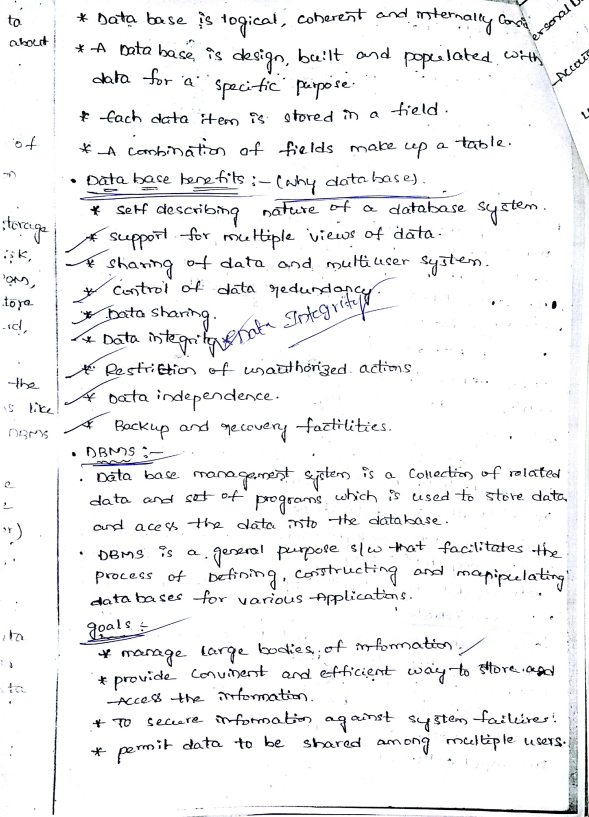 * Data base is logical, coherent and internally
* A Data base, is design, built and populated with
data for a specific purpose.
* Each data item is stored in a field.
* A combination of fields make up a table.
• Data base benefits :- (why database).
* self describing nature of a database system.
* support for multiple views of data.
* sharing of data and multiuser system.
* control of data redundancy.
* Data sharing.
* Data integrity * Data Integrity
* Restriction of unauthorized actions
* Data independence.
* Backup and recovery factilities.
• DBMS :-
• Data base management system is a collection of related
data and set of programs which is used to store data,
and acess the data into the database.
• DBMS is a general purpose s/w that facilitates the
process of Defining, constructing and manipulating
databases for various Applications.
goals :-
* manage large bodies of information.
* provide convinent and efficient way to store and
Access the information.
* To secure information against system failures.
* permit data to be shared among multiple users.
to
about
of
the
is like
DBMS